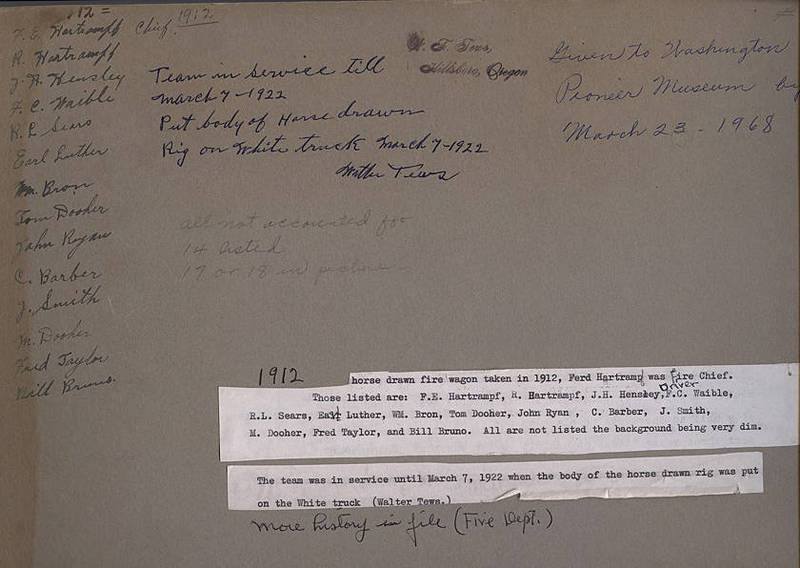 1912 =
F. E. Hartrampf Chief. 1912
R. Hartrampf
J. H. Hensley
F. C. Waible
R. L. Sears
Earl Luther
Wm. Bron
Tom Dooher
John Ryan
C. Barber
J. Smith
M. Dooher
Fred Taylor
Bill Bruno.
Team in service till
march 7-1922
Put body of Horse drawn
Rig on White truck March 7-1922
Walter Tews
W. F. Tews,
Hillsboro, Oregon
Given to Washington
Pioneer Museum by
March 23 - 1968
all not accounted for
14 listed
17 or 18 in picture
1912 horse drawn fire wagon taken in 1912, Ferd Hartramp was Fire Chief.
Driver
Those listed are: F.E. Hartrampf, R. Hartrampf, J.H. Hensley, F.C. Waible,
R.L. Sears, Earl Luther, WM. Bron, Tom Dooher, John Ryan , C. Barber, J. Smith,
M. Dooher, Fred Taylor, and Bill Bruno. All are not listed the background being very dim.
The team was in service until March 7, 1922 when the body of the horse drawn rig was put
on the White truck (Walter Tews.)
more history in file (Fire Dept.)